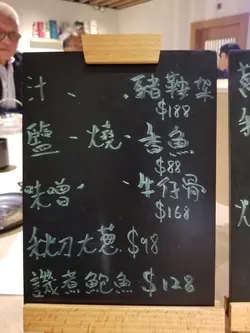 汁 - . 豬鞍架
$188
鹽 - 燒 - 香魚
$88
味噌 - 牛仔骨
$168
秋刀大蔥. $98
煮鮑魚 $128